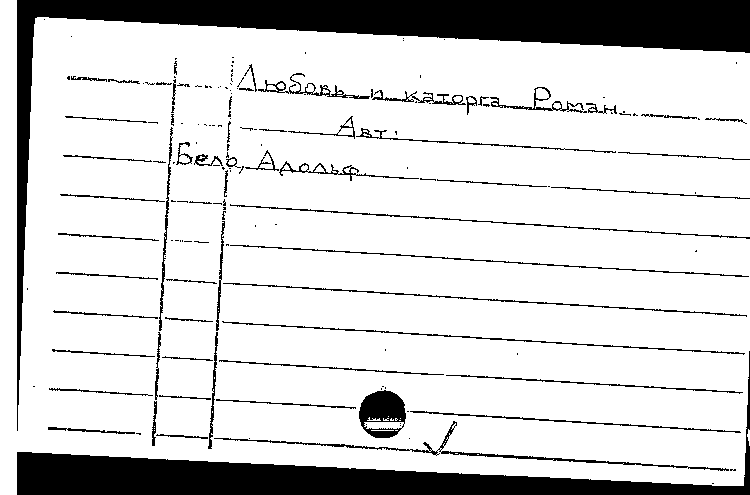 Любовь и каторга Роман.
Авт:
Бело, Адольф.